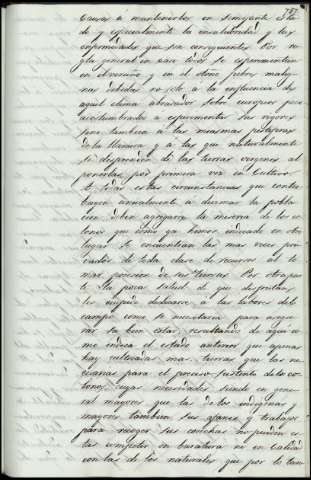 757
causas á mantenerlos en semejante esta
do y especialmente la insalubridad y las
enfermedades que son consiguientes. Por re
gla general en casi todos se experimentan
en el verano y en el otoño fiebres malig
nas debidas no solo á la influencia de
aquel clima abrasador sobre europeos poco
acostumbrados a experimentar sus rigores
pero tambien á las miasmas
de la llanura y á las que naturalmente
se desprenden de las tierras virgenes al
ponerlas por primera vez en cultivo
A todas estas circunstancias que contri
buyen anualmente a diezmar la pobla
cion deben agregarse la miseria de los co
lonos que como ya hemos indicado en otro
lugar se encuentran las mas veces pri
vados de toda clase de recursos al to
mar posesion de sus tierras. Por otra par
te la poca salud de que disfrutan,
les impide dedicarse á las labores del
campo como se necesitaria para asegu
rar su bien estar, resultando de aqui co
mo indica el estado anterior que apenas
hay cultivadas mas tierras que las ne
cesarias para el preciso sustento de los co
lonos, cuyas necesidades siendo en gene
ral mayores que las de los indigenas
mayores tambien sus gastos y trabajos
para recoger sus cosechas no pueden es
tas competir en baratura ni en calidad
con las de los naturales que por lo tan